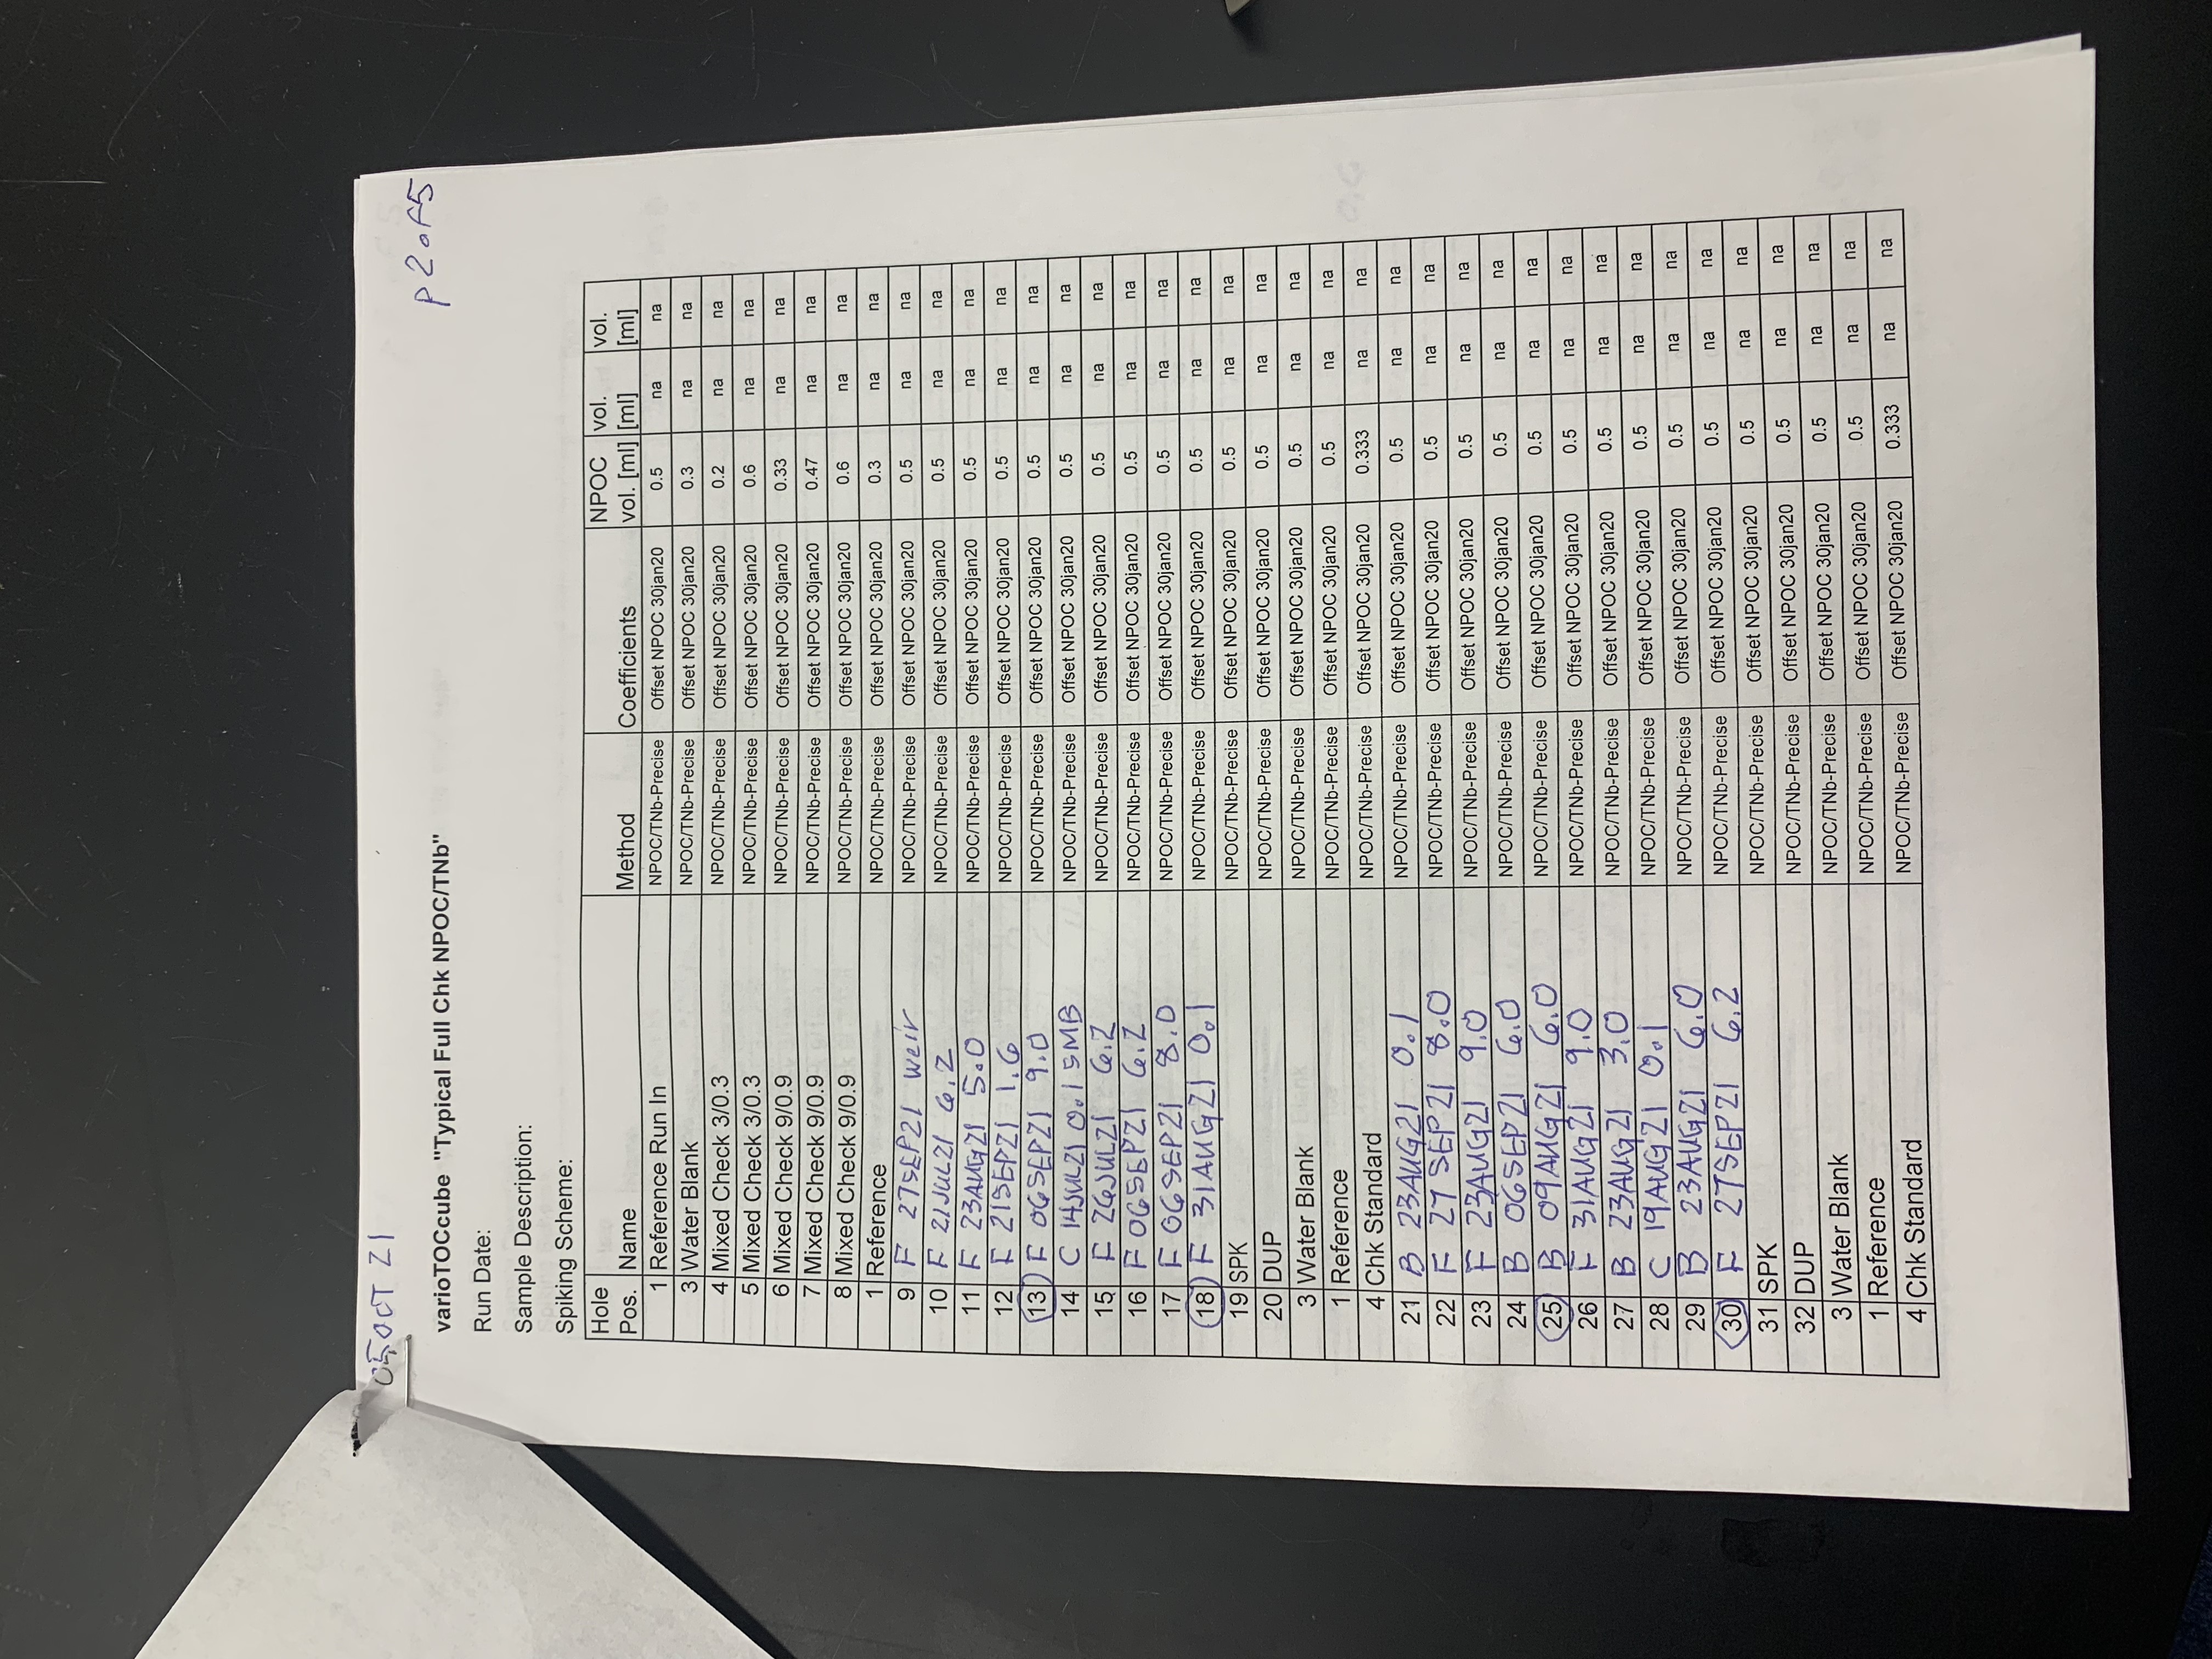 05OCT 21
p 2 of 5
varioTOCcube "Typical Full Chk NPOC/TNb"
Run Date:
Sample Description:
Spiking Scheme:
Hole Pos. Name Method Coefficients NPOC vol. [ml] vol. [ml] vol. [ml]
1 Reference Run In NPOC/TNb-Precise Offset NPOC 30jan20 0.5 na na
3 Water Blank NPOC/TNb-Precise Offset NPOC 30jan20 0.3 na na
4 Mixed Check 3/0.3 NPOC/TNb-Precise Offset NPOC 30jan20 0.2 na na
5 Mixed Check 3/0.3 NPOC/TNb-Precise Offset NPOC 30jan20 0.6 na na
6 Mixed Check 9/0.9 NPOC/TNb-Precise Offset NPOC 30jan20 0.33 na na
7 Mixed Check 9/0.9 NPOC/TNb-Precise Offset NPOC 30jan20 0.47 na na
8 Mixed Check 9/0.9 NPOC/TNb-Precise Offset NPOC 30jan20 0.6 na na
1 Reference NPOC/TNb-Precise Offset NPOC 30jan20 0.3 na na
9 F 27SEP21 weir NPOC/TNb-Precise Offset NPOC 30jan20 0.5 na na
10 F 21JUL21 6.2 NPOC/TNb-Precise Offset NPOC 30jan20 0.5 na na
11 F 23AUG21 5.0 NPOC/TNb-Precise Offset NPOC 30jan20 0.5 na na
12 F 21SEP21 1.6 NPOC/TNb-Precise Offset NPOC 30jan20 0.5 na na
13 F 06SEP21 9.0 NPOC/TNb-Precise Offset NPOC 30jan20 0.5 na na
14 C 14JUL21 0.1 SMB NPOC/TNb-Precise Offset NPOC 30jan20 0.5 na na
15 F 26JUL21 6.2 NPOC/TNb-Precise Offset NPOC 30jan20 0.5 na na
16 F 06SEP21 6.2 NPOC/TNb-Precise Offset NPOC 30jan20 0.5 na na
17 F 06SEP21 8.0 NPOC/TNb-Precise Offset NPOC 30jan20 0.5 na na
18 F 31AUG21 0.1 NPOC/TNb-Precise Offset NPOC 30jan20 0.5 na na
19 SPK NPOC/TNb-Precise Offset NPOC 30jan20 0.5 na na
20 DUP NPOC/TNb-Precise Offset NPOC 30jan20 0.5 na na
3 Water Blank NPOC/TNb-Precise Offset NPOC 30jan20 0.5 na na
1 Reference NPOC/TNb-Precise Offset NPOC 30jan20 0.5 na na
4 Chk Standard NPOC/TNb-Precise Offset NPOC 30jan20 0.333 na na
21 B 23AUG21 0.1 NPOC/TNb-Precise Offset NPOC 30jan20 0.5 na na
22 F 27SEP21 8.0 NPOC/TNb-Precise Offset NPOC 30jan20 0.5 na na
23 F 23AUG21 9.0 NPOC/TNb-Precise Offset NPOC 30jan20 0.5 na na
24 B 06SEP21 6.0 NPOC/TNb-Precise Offset NPOC 30jan20 0.5 na na
25 B 09AUG21 6.0 NPOC/TNb-Precise Offset NPOC 30jan20 0.5 na na
26 F 31AUG21 9.0 NPOC/TNb-Precise Offset NPOC 30jan20 0.5 na na
27 B 23AUG21 3.0 NPOC/TNb-Precise Offset NPOC 30jan20 0.5 na na
28 C 19AUG21 0.1 NPOC/TNb-Precise Offset NPOC 30jan20 0.5 na na
29 B 23AUG21 6.0 NPOC/TNb-Precise Offset NPOC 30jan20 0.5 na na
30 F 27SEP21 6.2 NPOC/TNb-Precise Offset NPOC 30jan20 0.5 na na
31 SPK NPOC/TNb-Precise Offset NPOC 30jan20 0.5 na na
32 DUP NPOC/TNb-Precise Offset NPOC 30jan20 0.5 na na
3 Water Blank NPOC/TNb-Precise Offset NPOC 30jan20 0.5 na na
1 Reference NPOC/TNb-Precise Offset NPOC 30jan20 0.5 na na
4 Chk Standard NPOC/TNb-Precise Offset NPOC 30jan20 0.333 na na